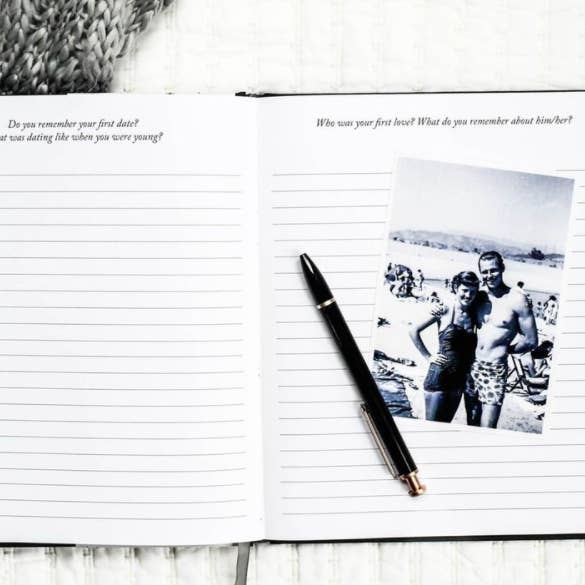 Do you remember your first date?
at was dating like when you were young?
Who was your first love? What do you remember about him/her?